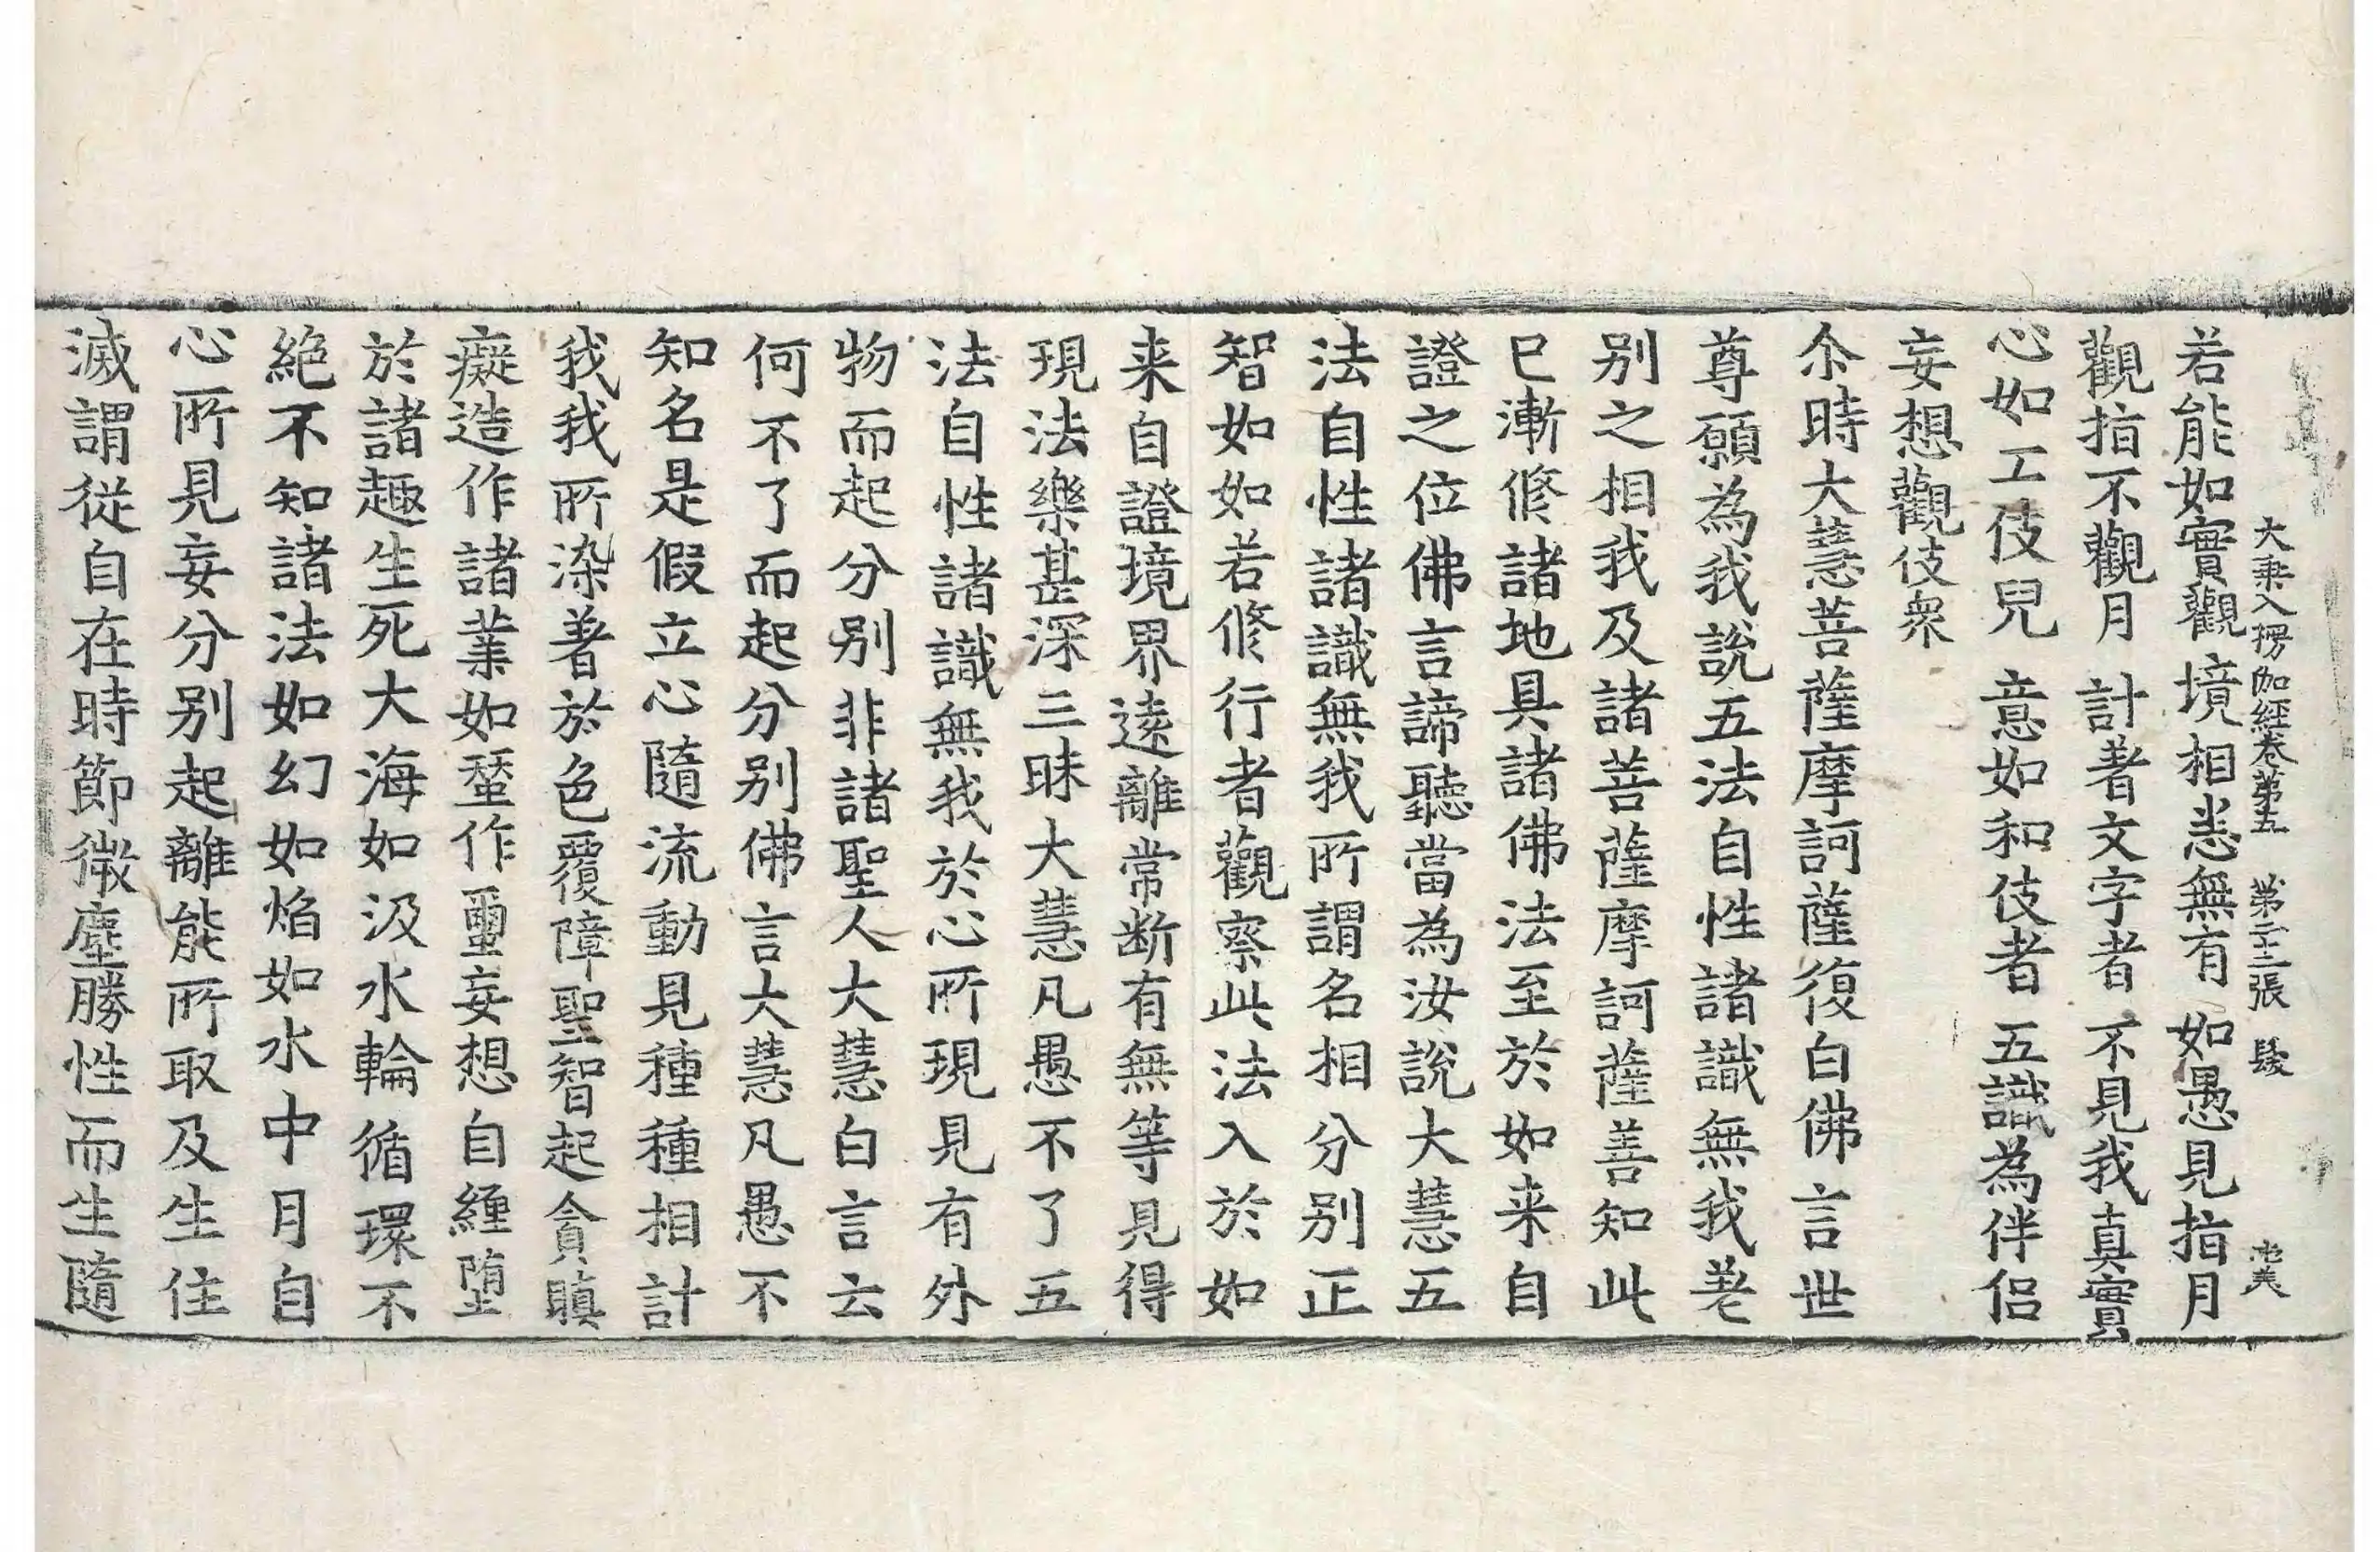 大乘入楞伽經卷第五 第二十二張 髮
若能如實觀 境相悉無有 如愚見指月
觀指不觀月 計著文字者 不見我真實
心如工伎兒 意如和伎者 五識為伴侶
妄想觀伎衆
尒時大慧菩薩摩訶薩復白佛言世
尊願為我說五法自性諸識無我差
别之相我及諸菩薩摩訶薩善知此
已漸修諸地具諸佛法至於如来自
證之位佛言諦聽當為汝說大慧五
法自性諸識無我所謂名相分别正
智如如若修行者觀察此法入於如
来自證境界遠離常断有無等見得
現法樂甚深三昧大慧凡愚不了五
法自性諸識無我於心所現見有外
物而起分别非諸聖人大慧白言云
何不了而起分别佛言大慧凡愚不
知名是假立心隨流動見種種相計
我我所染著於色覆障聖智起貪瞋
癡造作諸業如蚕作繭妄想自纏墮
於諸趣生死大海如汲水輪循環不
絕不知諸法如幻如焰如水中月自
心所見妄分别起離能所取及生住
滅謂從自在時節微塵勝性而生隨